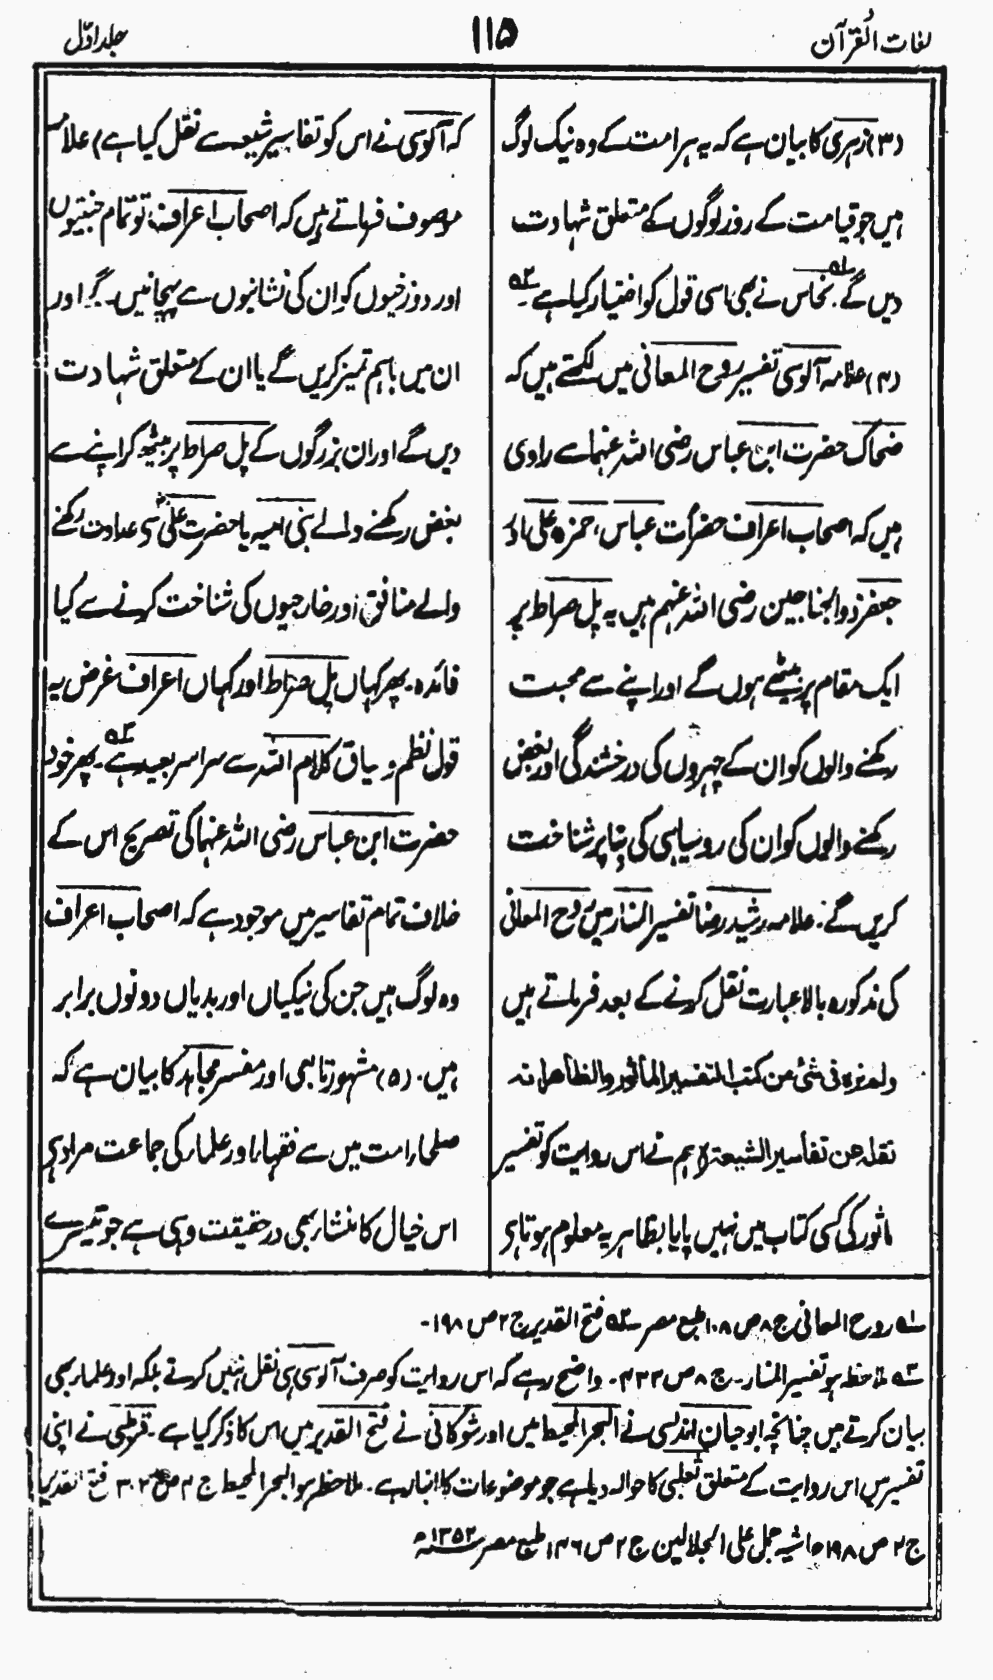 لغات القُرآن
۱۱۵
جلد اوّل
(۳) زہری کا بیان ہے کہ یہ ہر امت کے وہ نیک لوگ
ہیں جو قیامت کے روز لوگوں کے متعلق شہادت
دیں گے۔ ۱ نحاس نے بھی اسی قول کو اختیار کیا ہے ۲
(۴) علامہ آلوسی تفسیر روح المعانی میں لکھتے ہیں کہ
ضحاک حضرت ابن عباس رضی اللہ عنہما سے راوی
ہیں کہ اصحاب اعراف حضرت عباس، حمزہ علی اور
جعفر ذو الجناحین رضی اللہ عنہم ہیں یہ پل صراط پر
ایک مقام پر بیٹھے ہوں گے اور اپنے سے محبت
رکھنے والوں کو ان کے چہروں کی درخشندگی اور بغض
رکھنے والوں کو ان کی روسیاہی کی بنا پر شناخت
کریں گے۔ علامہ رشید رضا تفسیر المنار میں روح المعانی
کی مذکورہ بالا عبارت نقل کرنے کے بعد فرماتے ہیں
ولم نره فى شئ من كتب التفسير المأثور والظاهر انه
نقله عن تفاسير الشيعة (ہم نے اس روایت کو تفسیر
ماثور کی کسی کتاب میں نہیں پایا بظاہر یہ معلوم ہوتا ہی
کہ آلوسی نے اس کو تفاسیر شیعہ سے نقل کیا ہے) علامہ
موصوف فرماتے ہیں کہ اصحاب اعراف، تو تمام جنتیوں
اور دوزخیوں کو ان کی نشانیوں سے پہچانیں گے اور
ان میں باہم تمیز کریں گے یا ان کے متعلق شہادت
دیں گے اور ان بزرگوں کے پل صراط پر بیٹھ کر اپنے سے
بغض رکھنے والے بنی امیہ یا حضرت علیؓ سی عداوت رکھنے
والے منافق اور خارجیوں کی شناخت کرنے سے کیا
فائدہ۔ پھر کہاں پل صراط اور کہاں اعراف غرض یہ
قول نظم و سیاق کلام اللہ سے سراسر بعید ہے ۳۔ پھر خود
حضرت ابن عباس رضی اللہ عنہما کی تصریح اس کے
خلاف تمام تفاسیر میں موجود ہے کہ اصحاب اعراف
وہ لوگ ہیں جن کی نیکیاں اور بدیاں دونوں برابر
ہیں۔ (۵) مشہور تابعی اور مفسر مجاہد کا بیان ہے کہ
صلحاء امت میں سے فقہاء اور علماء کی جماعت مراد ہی
اس خیال کا منشاء بھی در حقیقت وہی ہے جو تیسرے
۱ روح المعانی ج ۸ ص ۱۰۸ طبع مصر ۲ فتح القدیر ج ۲ ص ۱۹۸۔
۳ ملاحظہ ہو تفسیر المنار۔ ج ۸ ص ۴۳۳۔ واضح رہے کہ اس روایت کو صرف آلوسی ہی نقل نہیں کرتے بلکہ اور علماء بھی
بیان کرتے ہیں چنانچہ ابو حیان اندلسی نے البحر المحیط میں اور شوکانی نے فتح القدیر میں اس کا ذکر کیا ہے۔ قرطبی نے اپنی
تفسیر میں اس روایت کے متعلق ثعلبی کا حوالہ دیا ہے جو موضوعات کا انبار ہے۔ ملاحظہ ہو البحر المحیط ج ۴ ص ۳۰۲ فتح القدیر
ج ۲ ص ۱۹۸ حاشیہ جمل علی الجلالین ج ۲ ص ۱۴۶ طبع مصر ۱۳۵۲ھ